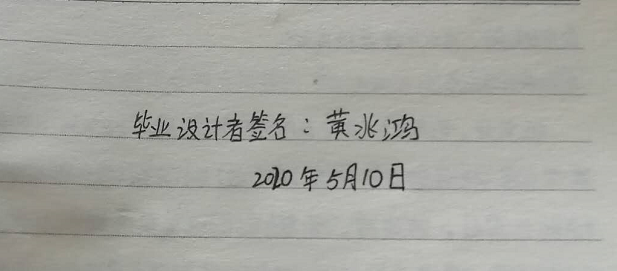 毕业设计者签名：黄兆鸿
2020年5月10日